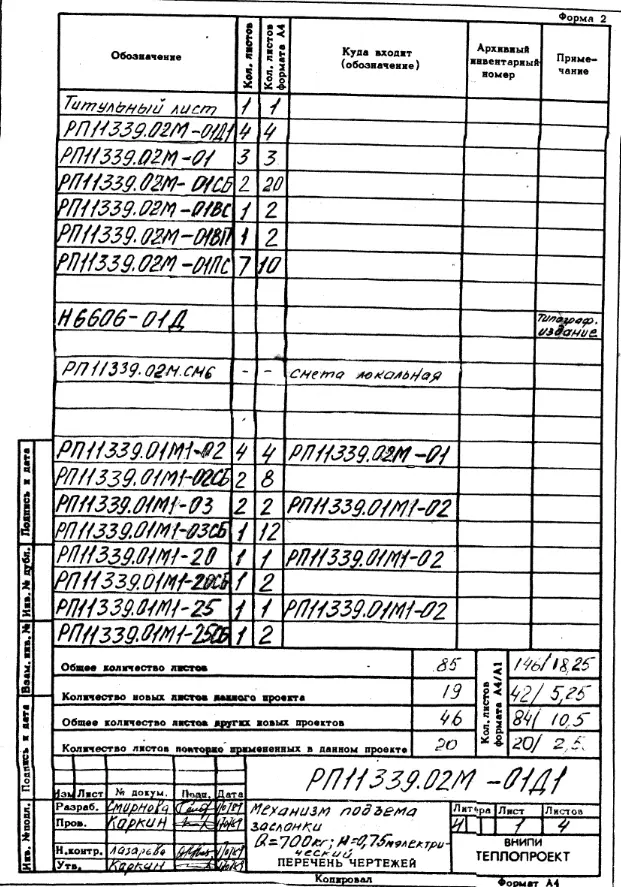 Форма 2
Обозначение Кол. листов Кол. листов формата А4 Куда входит (обозначение) Архивный инвентарный номер Приме-чание
Титульный лист 1 1
РП11339.02М-01Д1 4 4
РП11339.02М-01 3 3
РП11339.02М-01СБ 2 20
РП11339.02М-01ВС 1 2
РП11339.02М-01ВП 1 2
РП11339.02М-01ПС 7 10
Н6606-01Д Типограф. издание
РП11339.02М.СМ6 - - смета локальная
РП11339.01М1-02 4 4 РП11339.02М-01
РП11339.01М1-02СБ 2 8
РП11339.01М1-03 2 2 РП11339.01М1-02
РП11339.01М1-03СБ 1 12
РП11339.01М1-20 1 1 РП11339.01М1-02
РП11339.01М1-20СБ 1 2
РП11339.01М1-25 1 1 РП11339.01М1-02
РП11339.01М1-25СБ 1 2
Общее количество листов 85 Кол. листов формата А4/А1 146/18,25
Количество новых листов данного проекта 19 42/5,25
Общее количество листов других новых проектов 46 84/10,5
Количество листов повторно примененных в данном проекте 20 20/2,5
Инв. № подл. Подпись и дата Взам. инв. № Инв. № дубл. Подпись и дата
РП11339.02М-01Д1
Изм Лист № докум. Подп. Дата
Разраб. Смирнова
Пров. Каркин
Н.контр. Лазарева
Утв. Каркин
Механизм подъема
заслонки
Q=700кг; Н=0,75м электри-
ческий
ПЕРЕЧЕНЬ ЧЕРТЕЖЕЙ
Литера Лист Листов
И 1 4
ВНИПИ
ТЕПЛОПРОЕКТ
Копировал Формат А4